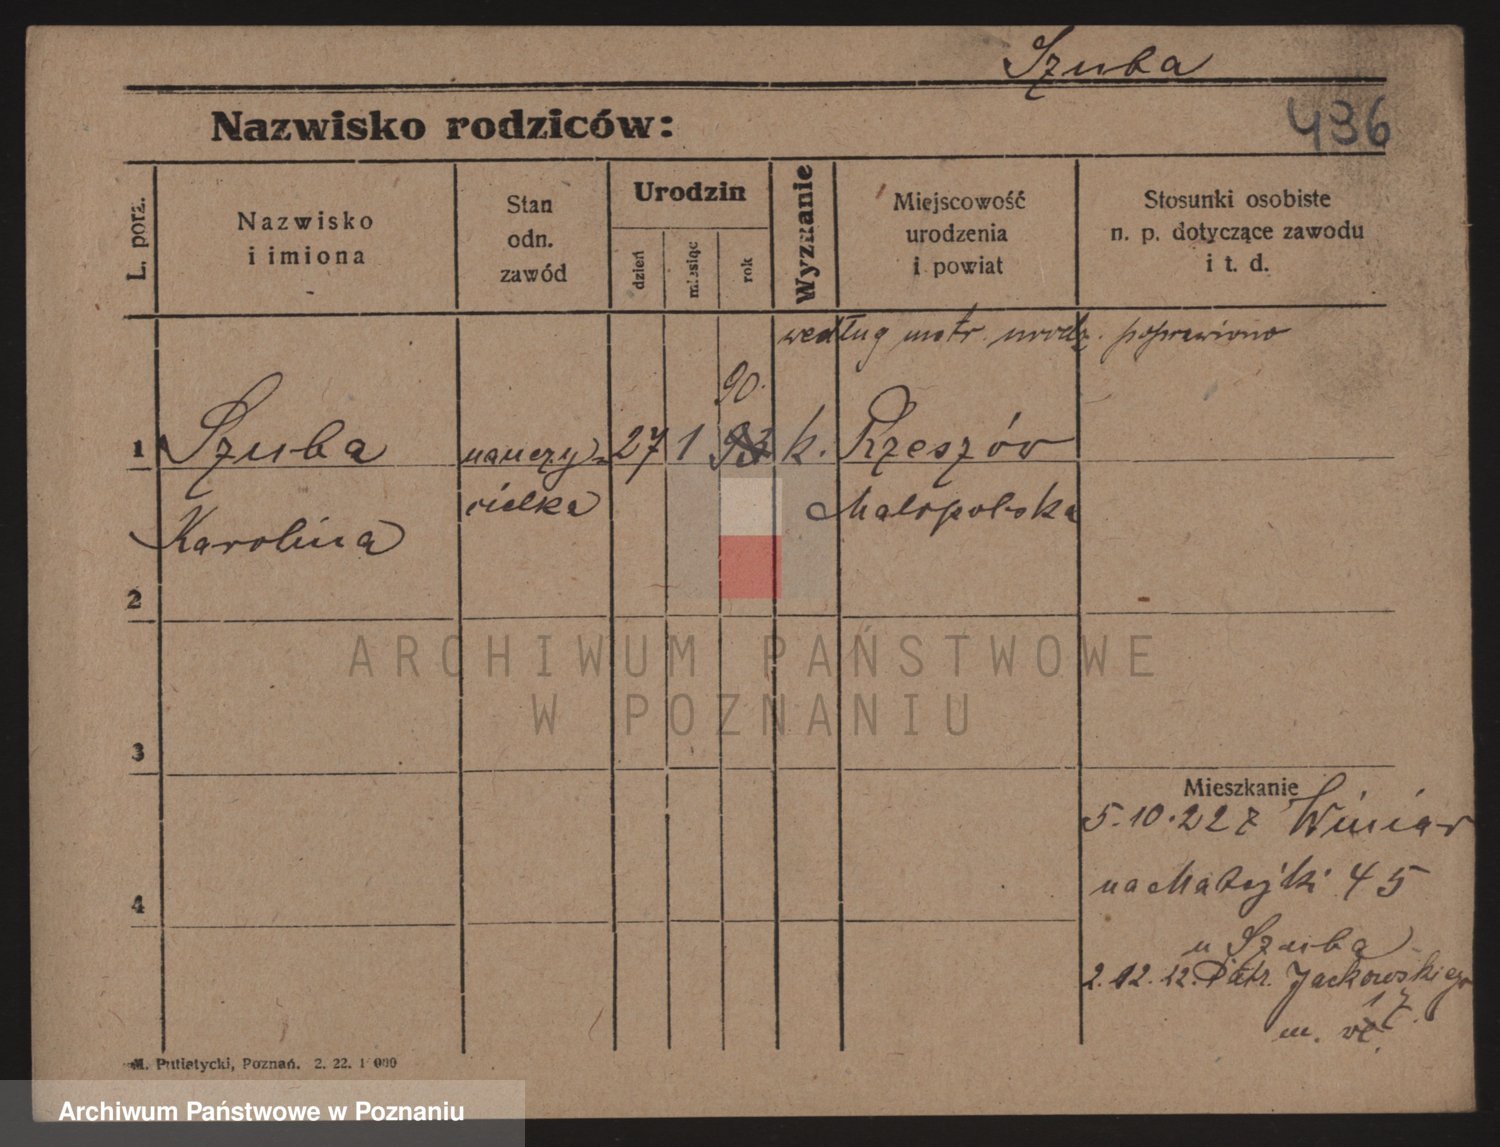 Szuba
Nazwisko rodziców:
436
L. porz.
Nazwisko
i imiona
Stan
odn.
zawód
Urodzin
dzień
miesiąc
rok
Wyznanie
Miejscowość
urodzenia
i powiat
Stosunki osobiste
n. p. dotyczące zawodu
i t. d.
według metr. urodz. poprawiono
90.
1 Szuba nauczy= 27 1 93 k. Rzeszów
cielka Małopolska
Karolina
2
3
4
Mieszkanie
5.10.22 z Winiar
na Matejki 45
u Szuba
2.12.22. Patr. Jackowskiego
17
m.
M. Putiatycki, Poznań. 2. 22.
ARCHIWUM PAŃSTWOWE
W POZNANIU
Archiwum Państwowe w Poznaniu